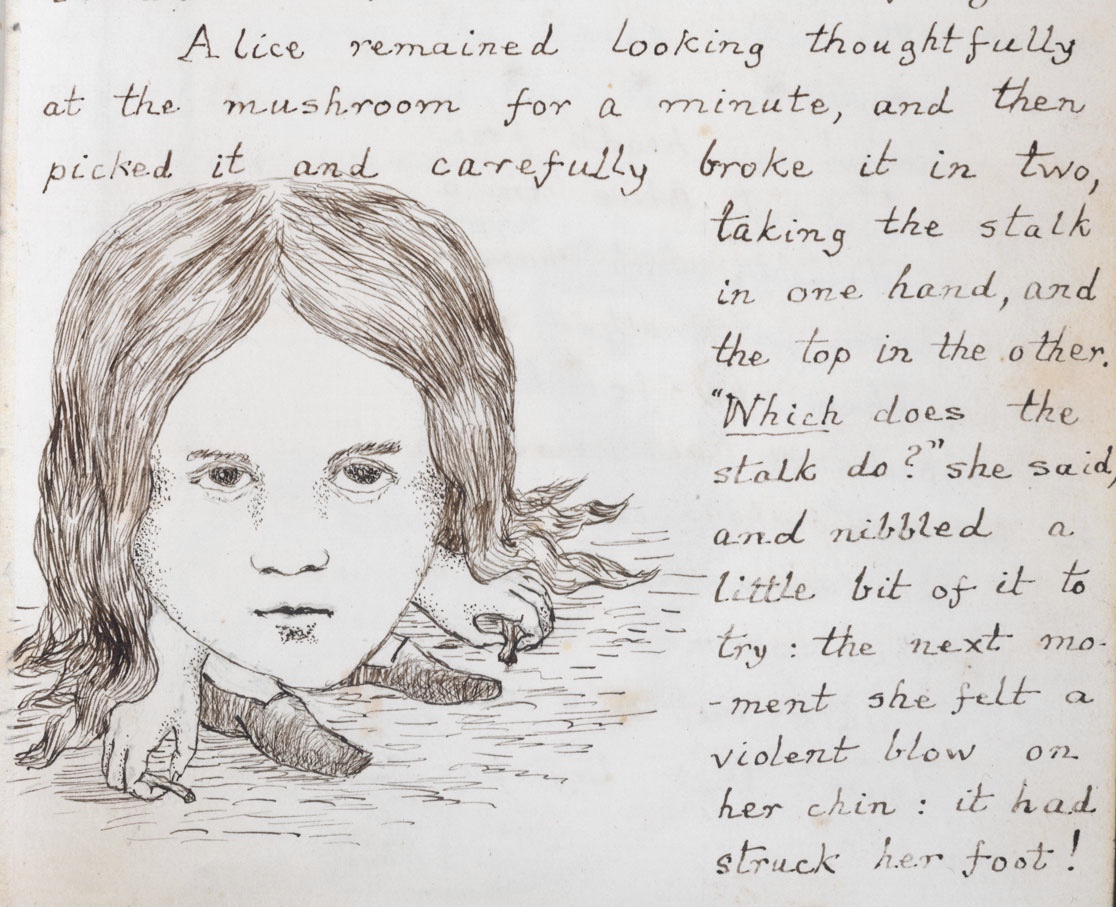 Alice remained looking thoughtfully
at the mushroom for a minute, and then
picked it and carefully broke it in two,
taking the stalk
in one hand, and
the top in the other.
"Which does the
stalk do?" she said,
and nibbled a
little bit of it to
try : the next mo-
-ment she felt a
violent blow on
her chin : it had
struck her foot!